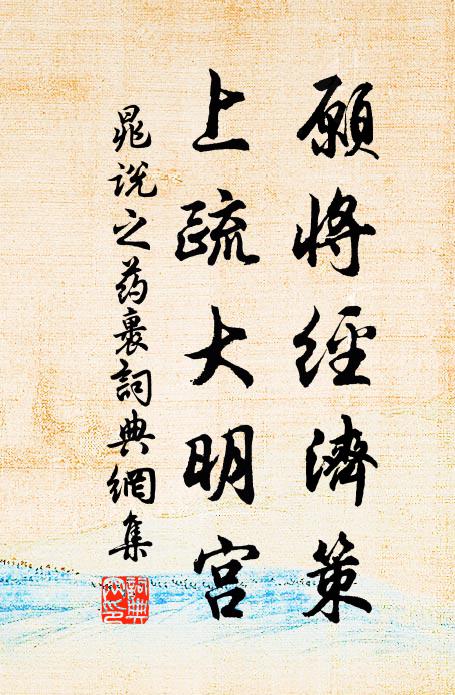 願將經濟策
上疏大明宮
晁说之药裹詞典網集